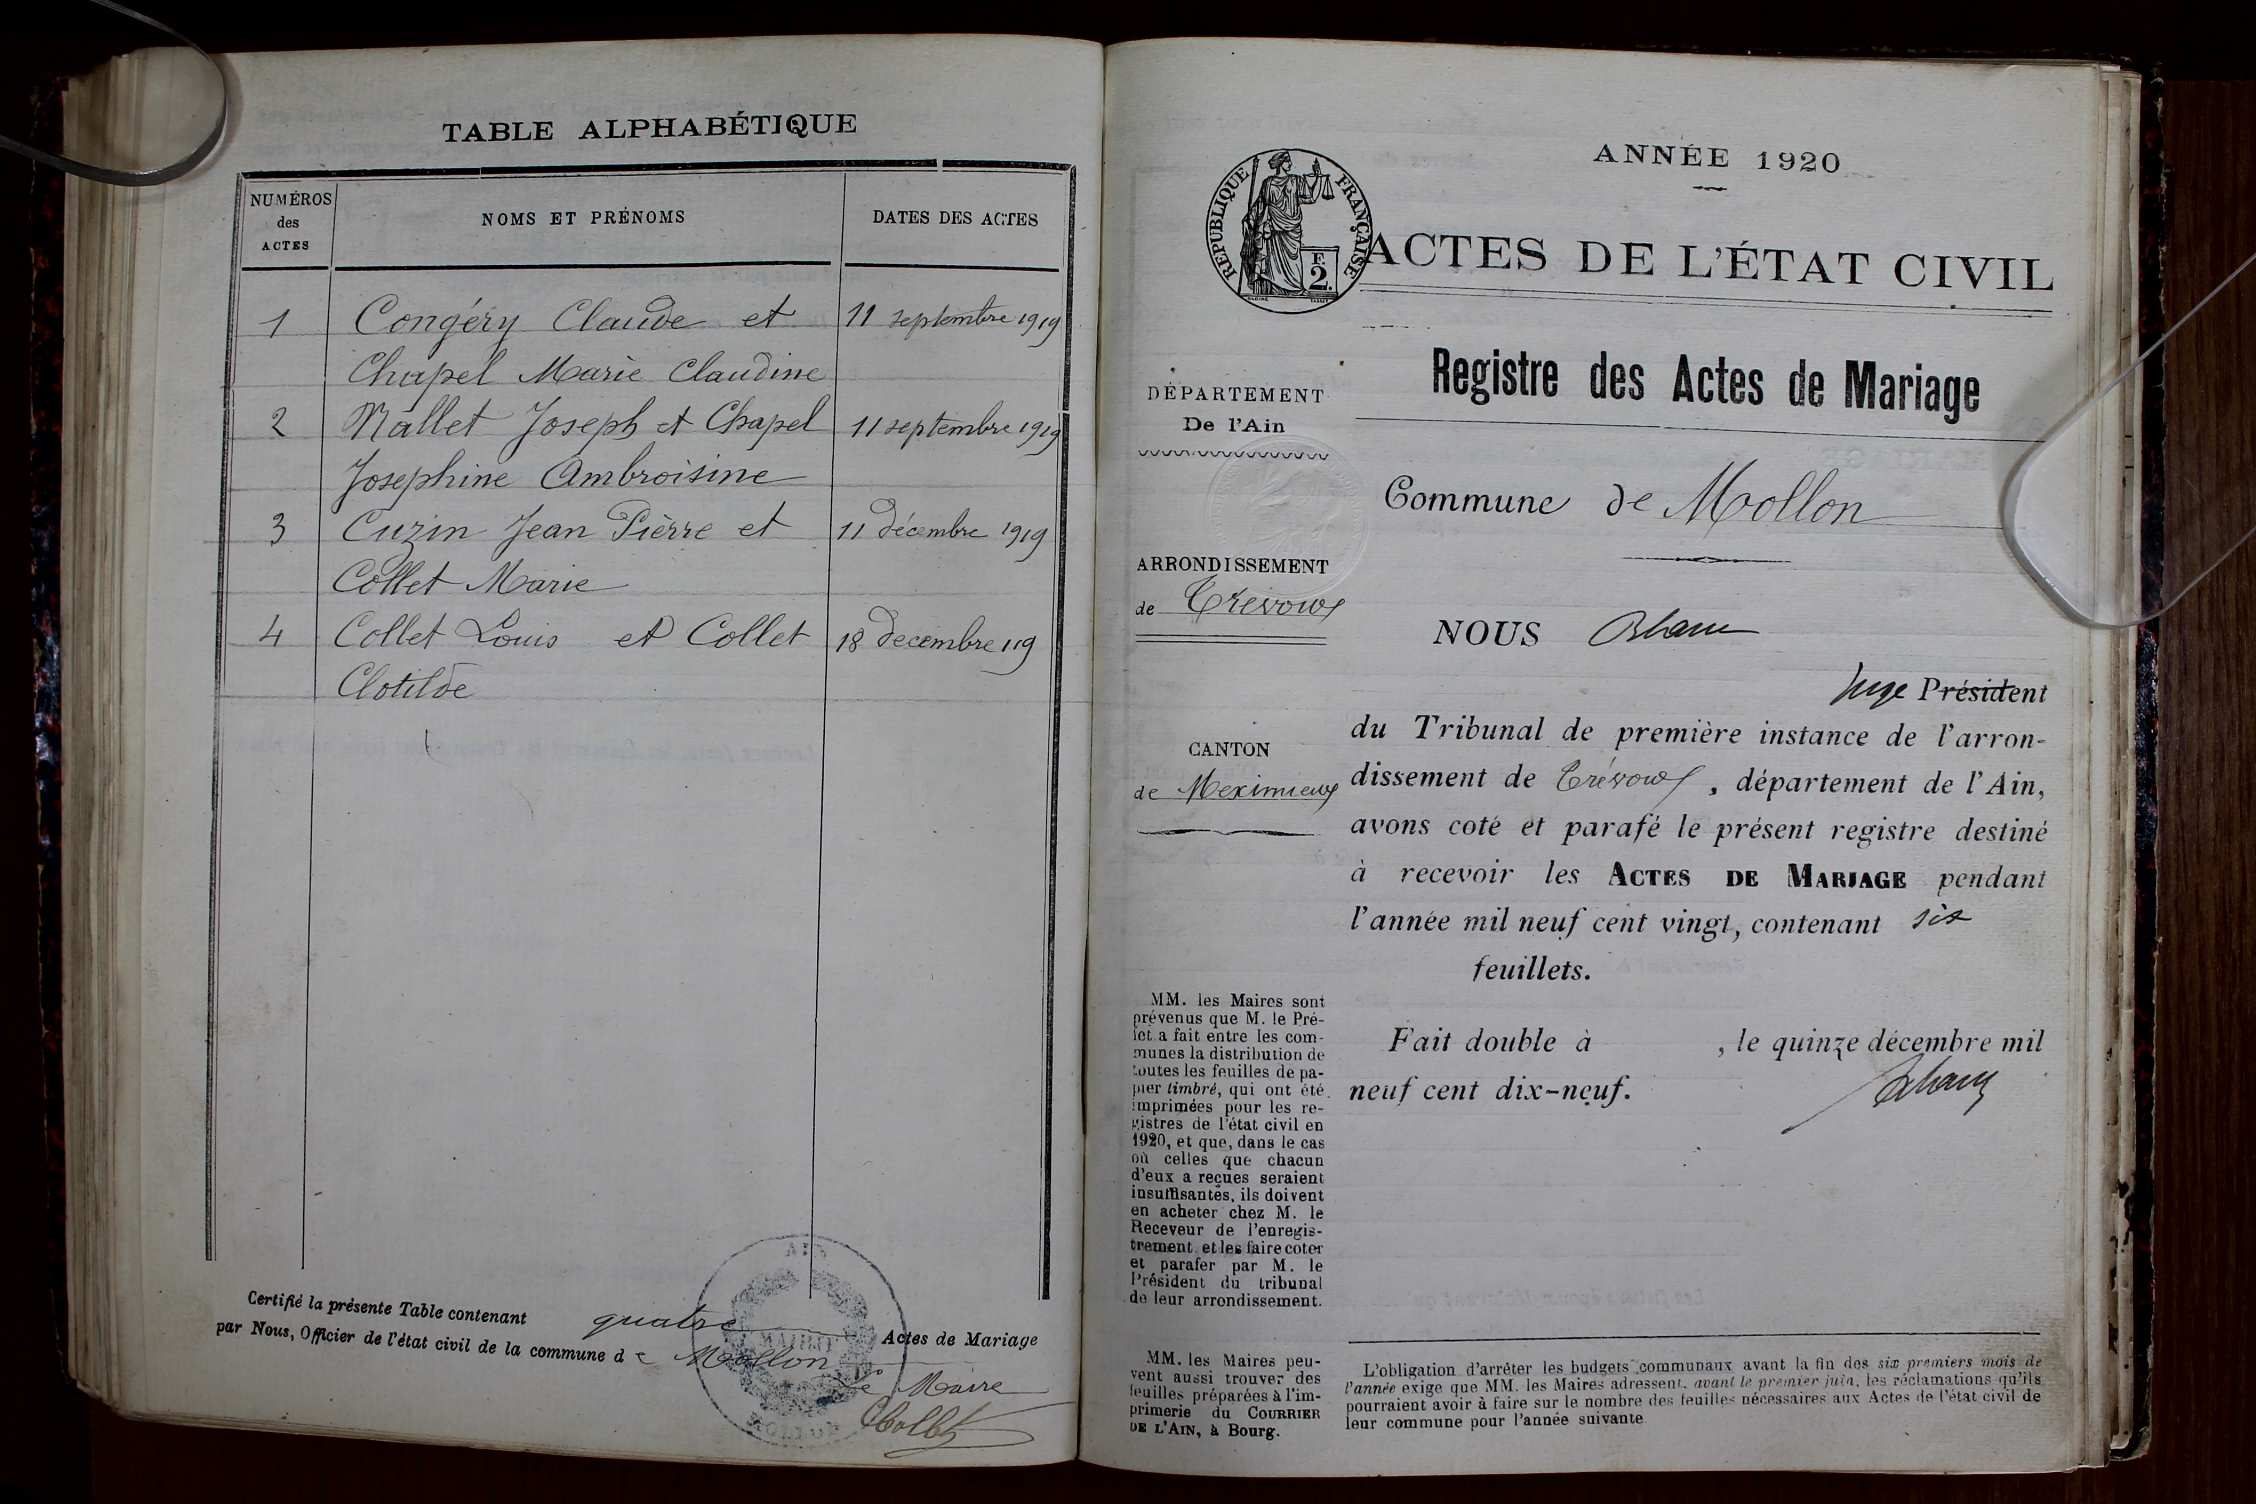 TABLE ALPHABÉTIQUE
NUMÉROS
des
ACTES
NOMS ET PRÉNOMS
DATES DES ACTES
1 Congéry Claude et 11 septembre 1919
Chapel Marie Claudine
2 Mallet Joseph et Chapel 11 septembre 1919
Josephine Ambroisine
3 Cuzin Jean Pièrre et 11 décembre 1919
Collet Marie
4 Collet Louis et Collet 18 decembre 119
Clotilde
Certifié la présente Table contenant quatre Actes de Mariage
par Nous, Officier de l'état civil de la commune de Mollon
Le Maire
MAIRIE
AIN
Collet
ANNÉE 1920
RÉPUBLIQUE FRANÇAISE
F.
2.
ACTES DE L'ÉTAT CIVIL
Registre des Actes de Mariage
DÉPARTEMENT
De l'Ain
Commune de Mollon
ARRONDISSEMENT
de Trévoux
CANTON
de Meximieux
NOUS
Juge Président
du Tribunal de première instance de l'arron-
dissement de Trévoux, département de l'Ain,
avons coté et parafé le présent registre destiné
à recevoir les ACTES DE MARIAGE pendant
l'année mil neuf cent vingt, contenant six
feuillets.
Fait double à , le quinze décembre mil
neuf cent dix-neuf.
MM. les Maires sont
prévenus que M. le Pré-
fet a fait entre les com-
munes la distribution de
toutes les feuilles de pa-
pier timbré, qui ont été
imprimées pour les re-
gistres de l'état civil en
1920, et que, dans le cas
où celles que chacun
d'eux a reçues seraient
insuffisantes, ils doivent
en acheter chez M. le
Receveur de l'enregis-
trement et les faire coter
et parafer par M. le
Président du tribunal
de leur arrondissement.
MM. les Maires peu-
vent aussi trouver des
feuilles préparées à l'im-
primerie du COURRIER
DE L'AIN, à Bourg.
L'obligation d'arrêter les budgets communaux avant la fin des six premiers mois de
l'année exige que MM. les Maires adressent, avant le premier juin, les réclamations qu'ils
pourraient avoir à faire sur le nombre des feuilles nécessaires aux Actes de l'état civil de
leur commune pour l'année suivante